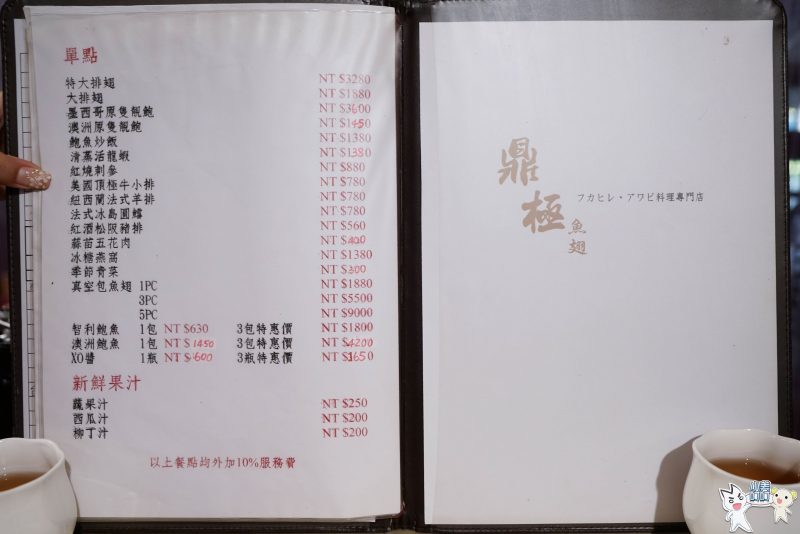 單點
特大排翅 NT $3280
大排翅 NT $1880
墨西哥原隻靚鮑 NT $3600
澳洲原隻靚鮑 NT $1450
鮑魚炒飯 NT $1380
清蒸活龍蝦 NT $1380
紅燒刺參 NT $880
美國頂極牛小排 NT $780
紐西蘭法式羊排 NT $780
法式冰島圓鱈 NT $780
紅酒松阪豬排 NT $560
蒜苗五花肉 NT $400
冰糖燕窩 NT $1380
季節青菜 NT $300
真空包魚翅 1PC NT $1880
3PC NT $5500
5PC NT $9000
智利鮑魚 1包 NT $630 3包特惠價 NT $1800
澳洲鮑魚 1包 NT $1450 3包特惠價 NT $4200
XO醬 1瓶 NT $600 3瓶特惠價 NT $1650
新鮮果汁
蔬果汁 NT $250
西瓜汁 NT $200
柳丁汁 NT $200
以上餐點均外加10%服務費
鼎極魚翅
フカヒレ・アワビ料理専門店